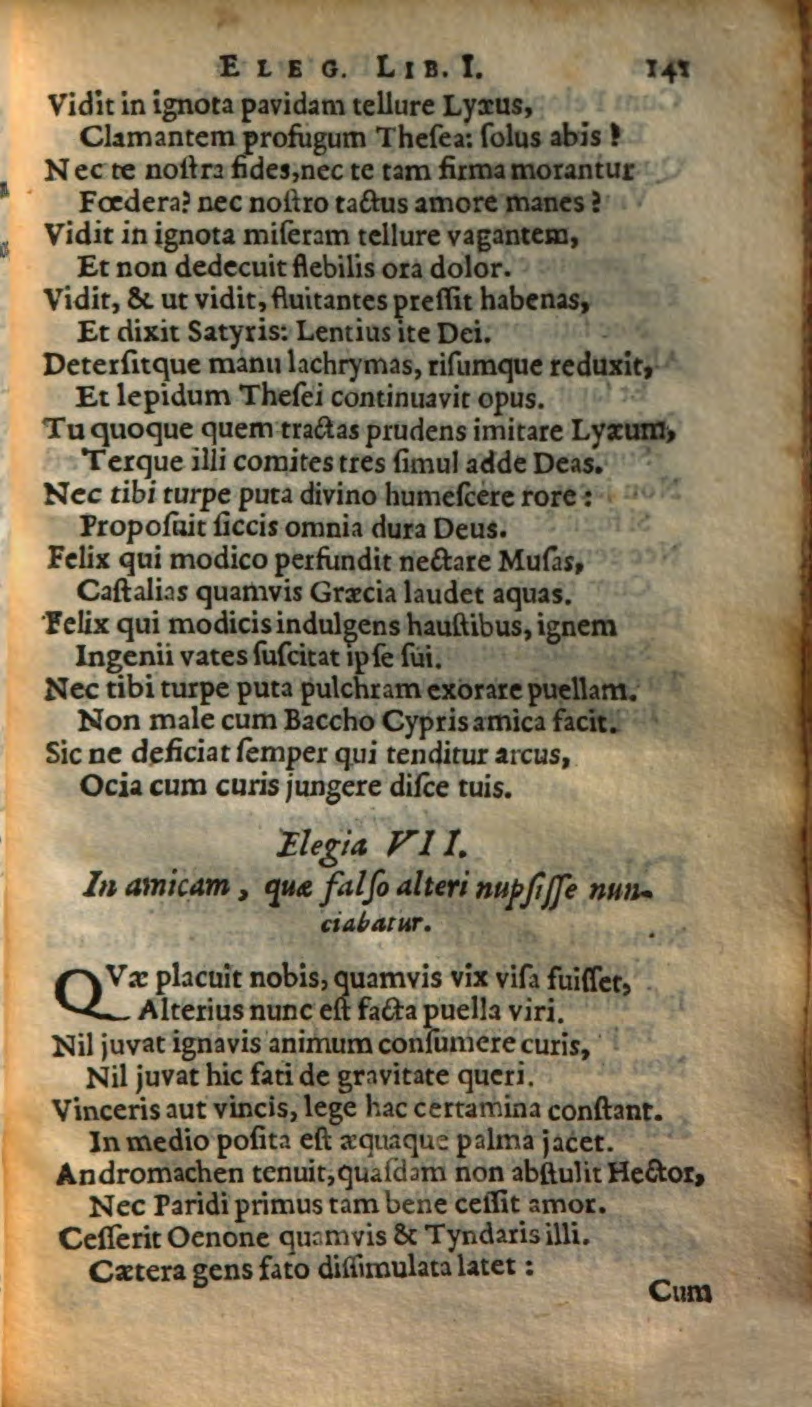 ELEG. LIB. I. 141
Vidit in ignota pavidam tellure Lyæus,
Clamantem profugum Theſea: ſolus abis?
Nec te noſtra fides, nec te tam firma morantur
Fœdera? nec noſtro tactus amore manes?
Vidit in ignota miſeram tellure vagantem,
Et non dedecuit flebilis ora dolor.
Vidit, & ut vidit, fluitantes preſſit habenas,
Et dixit Satyris: Lentius ite Dei.
Deterſitque manu lachrymas, riſumque reduxit,
Et lepidum Theſei continuavit opus.
Tu quoque quem tractas prudens imitare Lyæum,
Terque illi comites tres ſimul adde Deas.
Nec tibi turpe puta divino humeſcere rore:
Propoſuit ſiccis omnia dura Deus.
Felix qui modico perfundit nectare Muſas,
Caſtalias quamvis Græcia laudet aquas.
Felix qui modicis indulgens hauſtibus, ignem
Ingenii vates ſuſcitat ipſe ſui.
Nec tibi turpe puta pulchram exorare puellam.
Non male cum Baccho Cypris amica facit.
Sic ne deficiat ſemper qui tenditur arcus,
Ocia cum curis jungere diſce tuis.
Elegia VII.
In amicam, quæ falſo alteri nupſiſſe nun-
ciabatur.
QVæ placuit nobis, quamvis vix viſa fuiſſet,
Alterius nunc eſt facta puella viri.
Nil juvat ignavis animum conſumere curis,
Nil juvat hic fati de gravitate queri.
Vinceris aut vincis, lege hac certamina conſtant.
In medio poſita eſt æquaque palma jacet.
Andromachen tenuit, quaſdam non abſtulit Hector,
Nec Paridi primus tam bene ceſſit amor.
Ceſſerit Oenone quamvis & Tyndaris illi.
Cætera gens fato diſſimulata latet:
Cum